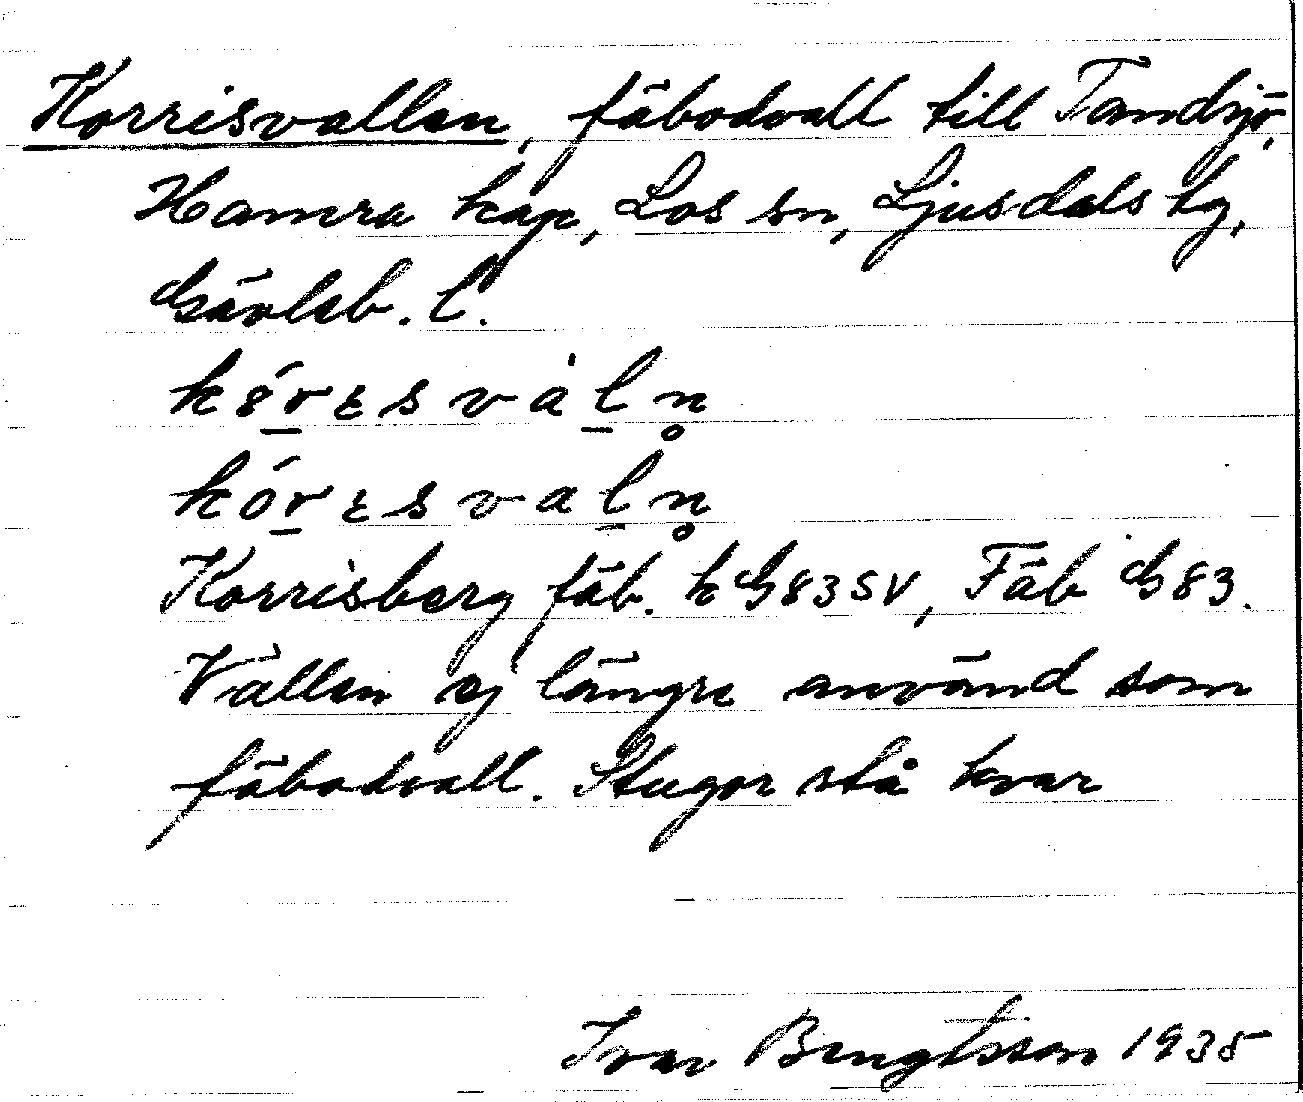 Korrisvallen, fäbodvall till Tandsjö,
Hamra kap, Los sn, Ljusdals tg,
Gävleb. l.
kórɛsvàln̥
kórɛsvaln̥
Korrisberg fäb. k G83SV, Fäb G83.
Vallen ej längre använd som
fäbodvall. Stugor stå kvar
Ivar Bengtsson 1935